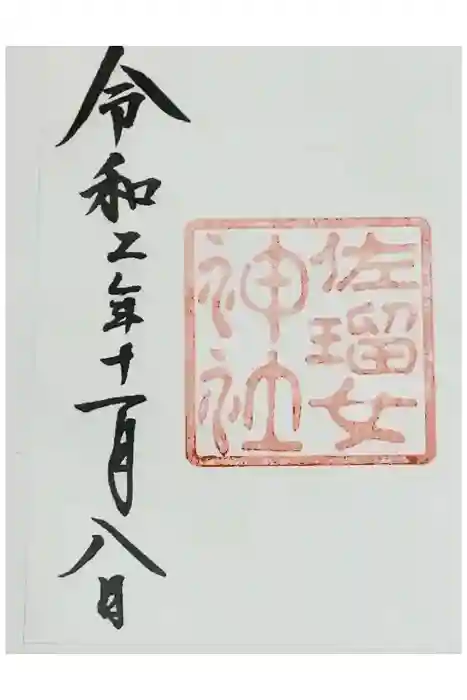 佐瑠女
神社
令和二年十一月八日